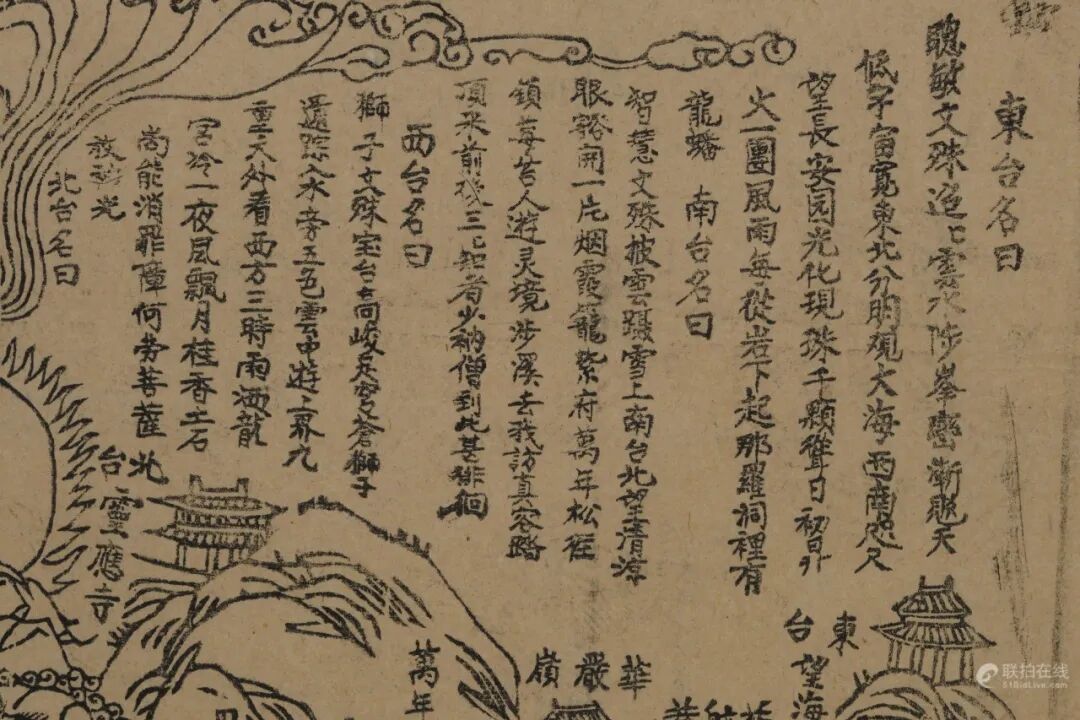 東台名曰
聰敏文殊迢匕雲水涉峯巒漸覩天
低宇宙寬東北分明覌大海西南咫尺
望長安园光化現珠千顆聳日初昇
火一團風雨每從岩下起那羅洞裡有
龍蟠 南台名曰
智慧文殊披雲躡雪上南台北望清涼
眼豁開一片烟霞籠紫府萬年松徑
鎖每苔人遊灵境涉溪去我訪真容踏
頂來前後三匕知者少衲僧到此甚徘徊
西台名曰
獅子文殊宝台高峻足穹蒼獅子
遺踪入水旁五色雲中遊上界九
重天外看西方三時雨洒龍
宮冷一夜風飄月桂香土石
尚能消罪障何劳菩薩
放神光
北台名曰
北台靈應寺
東台望海
華嚴嶺
萬年
联拍在线
51BidLive.com